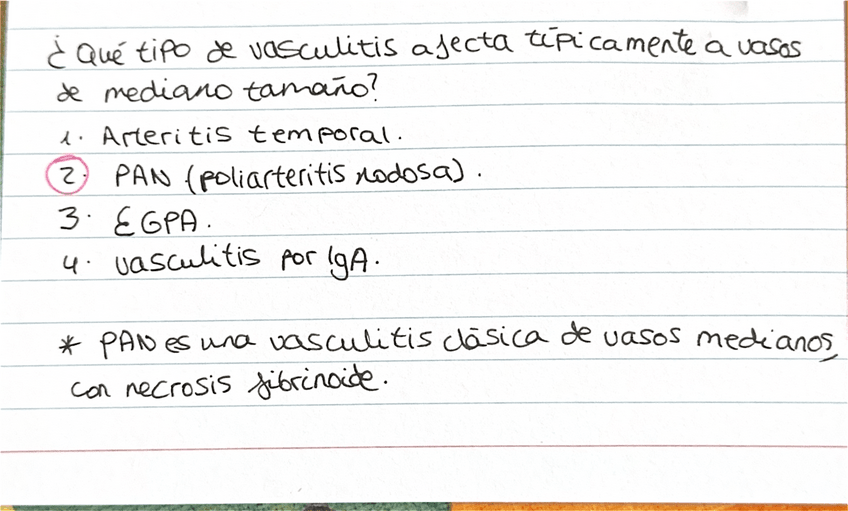 ¿Qué tipo de vasculitis afecta típicamente a vasos
de mediano tamaño?
1. Arteritis temporal.
2. PAN (poliarteritis nodosa).
3. EGPA.
4. vasculitis por IgA.
* PAN es una vasculitis clásica de vasos medianos,
con necrosis fibrinoide.